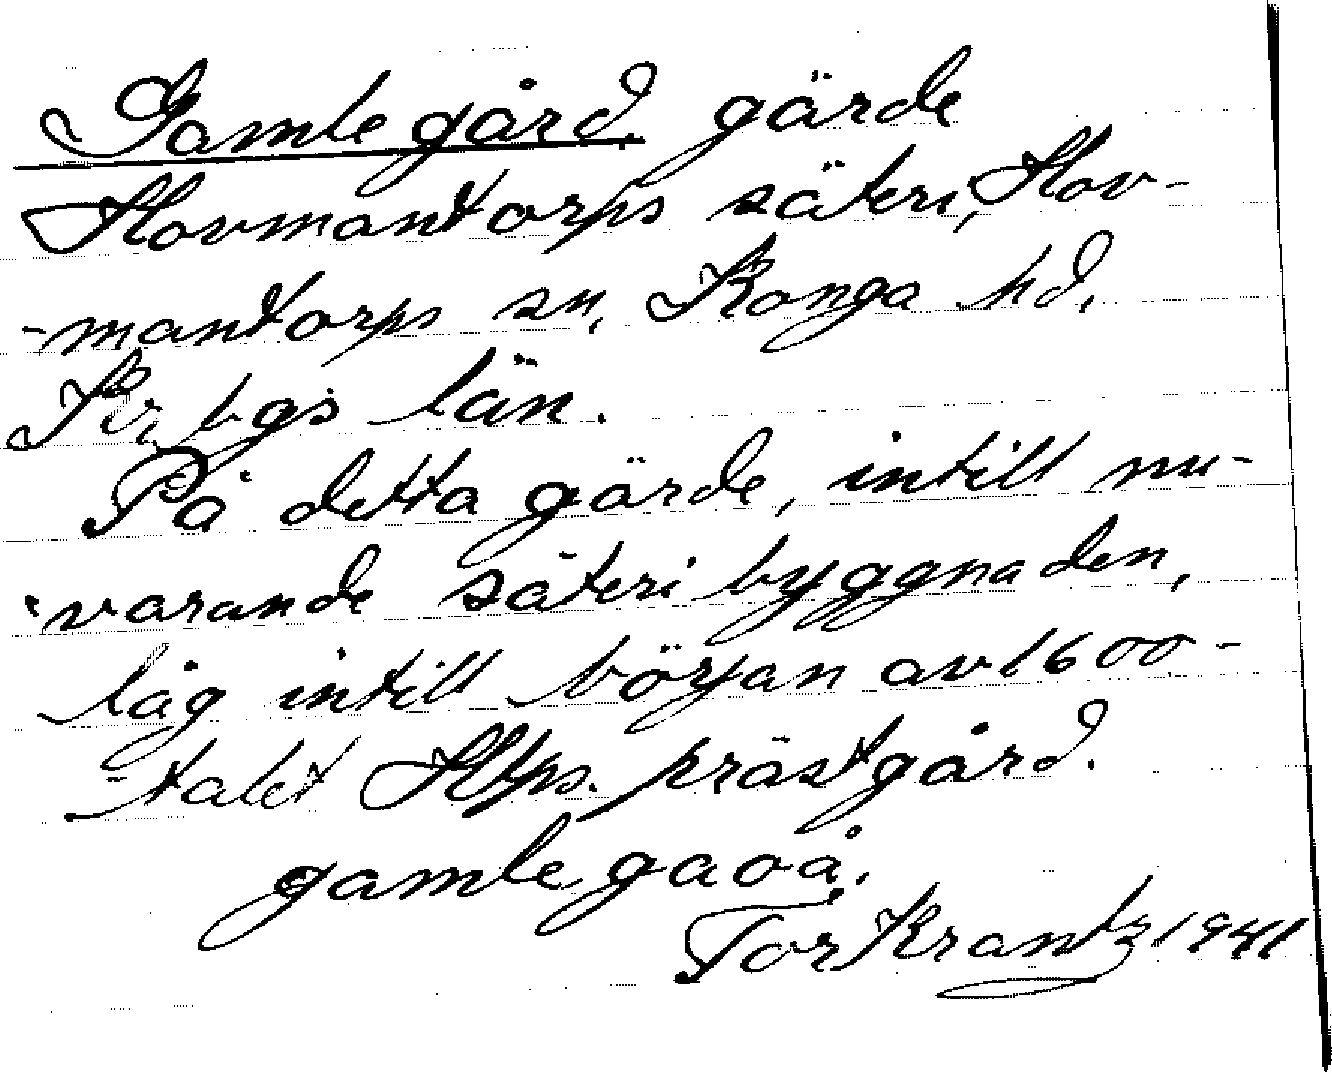 Gamlegård, gärde
Hovmantorps säteri, Hov-
-mantorps sn, Konga hd,
Kr bgs län.
På detta gärde, intill nu-
varande säteribyggnaden,
låg intill början av 1600-
-talet Htps. prästgård.
gamlegaoå.
Tor Krantz 1941